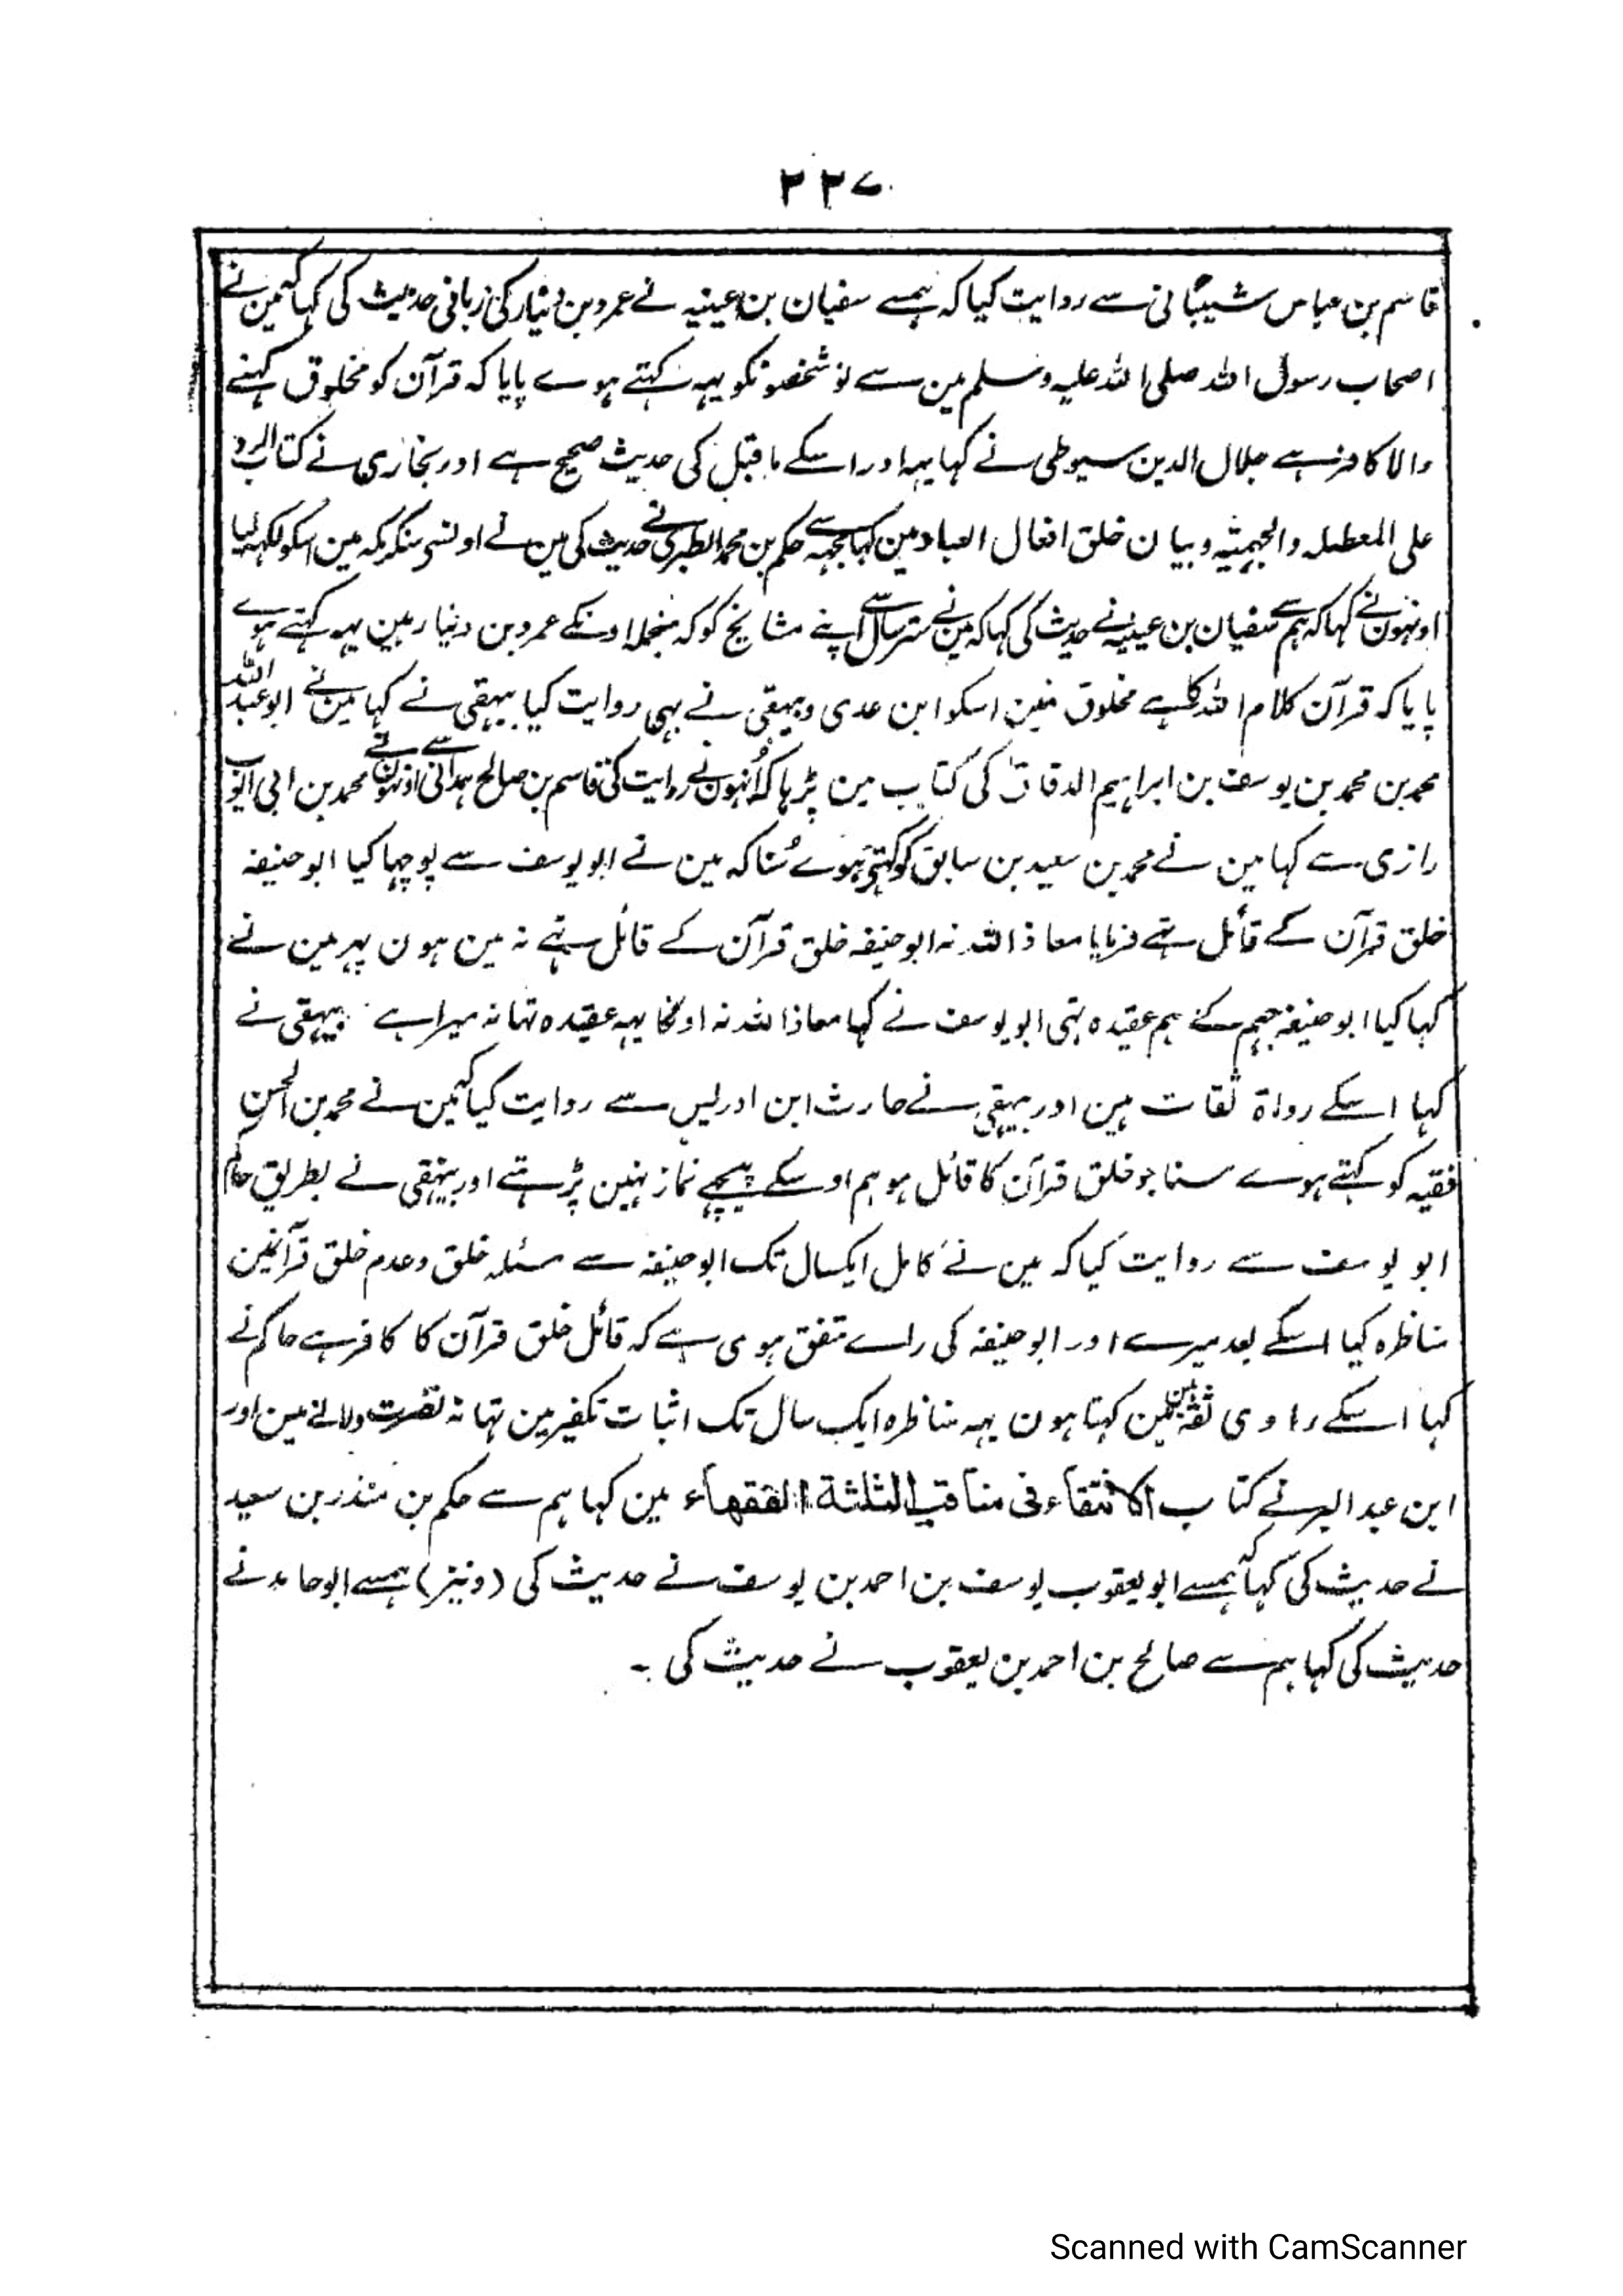 ۲۲۷
قاسم بن عباس شیبانی سے روایت کیا کہ ہمسے سفیان بن عیینہ نے عمرو بن دینار کی زبانی حدیث کی کہا کہ مین نے
اصحاب رسول اللہ صلی اللہ علیہ وسلم مین سے نو شخصونکو یہہ کہتے ہوے پایا کہ قرآن کو مخلوق کہنے
والا کافر ہے جلال الدین سیوطی نے کہا یہہ اور اسکے ماقبل کی حدیث صحیح ہے اور بخاری نے کتاب الرد
علی المعطلہ والجہمیۃ وبیان خلق افعال العباد مین کہا مجہہ سے حکم بن محمد الطبری نے حدیث کی مین نے اونسے سنکر مکہ مین اسکو لکہہ لیا
اونہون نے کہا کہ ہم سے سفیان بن عیینہ نے حدیث کی کہا کہ مین نے ستر سال سے اپنے مشایخ کو کہ منجملہ اونکے عمرو بن دینار ہین یہہ کہتے ہوے
پایا کہ قرآن کلام اللہ کا ہے مخلوق نہین اسکو ابن عدی وبیہقی نے بہی روایت کیا بیہقی نے کہا مین نے ابو عبد اللہ
محمد بن محمد بن یوسف بن ابراہیم الدقاق کی کتاب مین پڑہا کہ اُنہون نے روایت کی قاسم بن صالح ہمدانی سے اونہون نے محمد بن ابی ایوب
رازی سے کہا مین نے محمد بن سعید بن سابق کو کہتے ہوے سُنا کہ مین نے ابو یوسف سے پوچہا کیا ابو حنیفہ
خلق قرآن کے قائل تہے فرمایا معاذ اللہ نہ ابو حنیفہ خلق قرآن کے قائل تہے نہ مین ہون پہر مین نے
کہا کیا ابو حنیفہ جہم کے ہم عقیدہ تہی ابو یوسف نے کہا معاذ اللہ نہ اونکا یہہ عقیدہ تہا نہ میرا ہے بیہقی نے
کہا اسکے رواۃ ثقات ہین اور بیہقی نے حارث ابن ادریس سے روایت کیا کہ مین نے محمد بن الحسن
فقیہ کو کہتے ہوے سنا جو خلق قرآن کا قائل ہو ہم اوسکے پیچہے نماز نہین پڑہتے اور بیہقی نے بطریق حاکم
ابو یوسف سے روایت کیا کہ مین نے کامل ایکسال تک ابو حنیفہ سے مسئلہ خلق وعدم خلق قرآنمین
مناظرہ کیا اسکے بعد میرے اور ابو حنیفہ کی راے متفق ہوی ہے کہ قائل خلق قرآن کا کافر ہے حاکم نے
کہا اسکے راوی ثقہ ہین مین کہتا ہون یہہ مناظرہ ایک سال تک اثبات تکفیر مین تہا نہ نصرت ولانے مین اور
ابن عبد البر نے کتاب الانتقاء فی مناقب الثلثۃ الفقہاء مین کہا ہم سے حکم بن منذر بن سعید
نے حدیث کی کہا کہ ہمسے ابو یعقوب یوسف بن احمد بن یوسف نے حدیث کی (ونیز) ہمسے ابو حامد نے
حدیث کی کہا ہم سے صالح بن احمد بن یعقوب نے حدیث کی ۔
Scanned with CamScanner